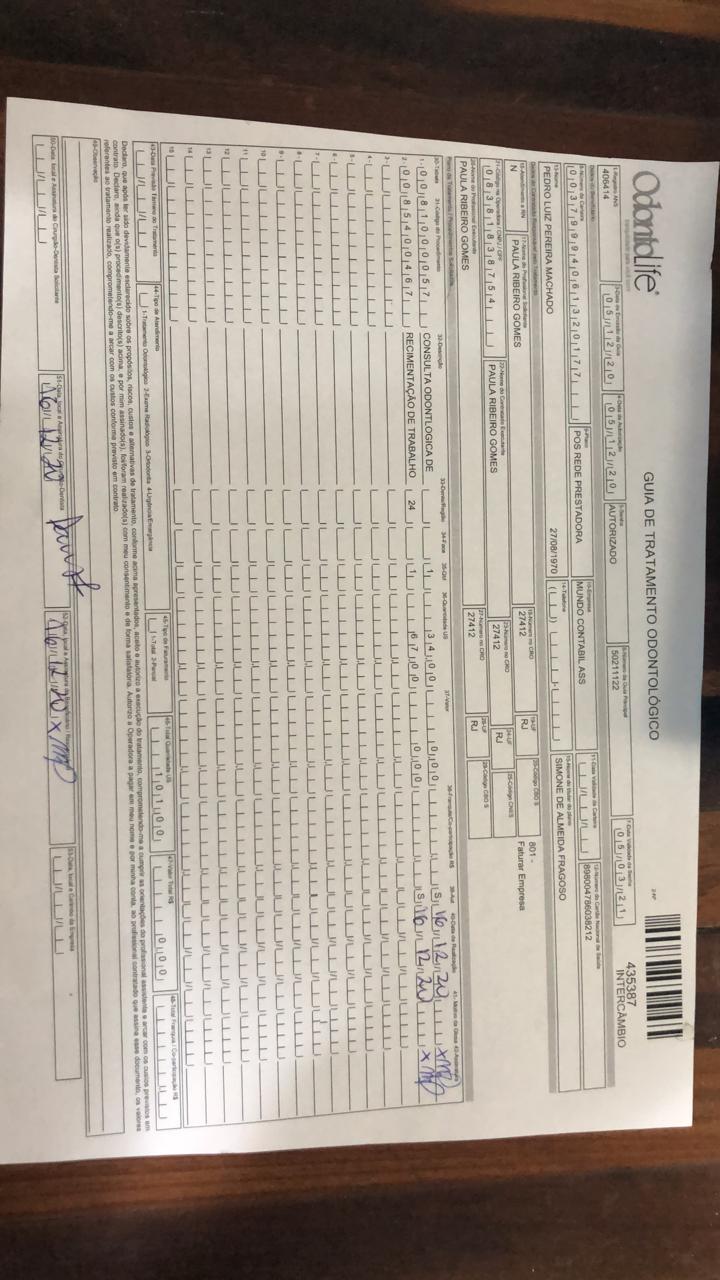 OdontoLife®
GUIA DE TRATAMENTO ODONTOLÓGICO
2-Nº
435387
INTERCÂMBIO
1-Registro ANS
406414
3-Data de Emissão da Guia
05/12/20
4-Data de Autorização
05/12/20
5-Senha
AUTORIZADO
6-Número da Guia Principal
50211122
7-Data Validade da Senha
05/03/21
Dados do Beneficiário
8-Número da Carteira
00379994061320177
9-Plano
POS REDE PRESTADORA
10-Empresa
MUNDO CONTABIL ASS
11-Data Validade da Carteira
12-Número do Cartão Nacional de Saúde
898004786038212
13-Nome
PEDRO LUIZ PEREIRA MACHADO
27/08/1970
14-Telefone
15-Nome do titular do plano
SIMONE DE ALMEIDA FRAGOSO
Dados do Contratado Responsável pelo Tratamento
16-Atendimento a RN
N
17-Nome do Profissional Solicitante
PAULA RIBEIRO GOMES
18-Número no CRO
27412
19-UF
RJ
20-Código CBO S
801 -
Faturar Empresa
21-Código na Operadora / CNPJ / CPF
08381838754
22-Nome do Contratado Executante
PAULA RIBEIRO GOMES
23-Número no CRO
27412
24-UF
RJ
25-Código CNES
26-Nome do Profissional Executante
PAULA RIBEIRO GOMES
27-Número no CRO
27412
28-UF
RJ
29-Código CBO S
Plano de Tratamento / Procedimentos Solicitados
30-Tabela 31-Código do Procedimento 32-Descrição 33-Dente/Região 34-Face 35-Qtd 36-Quantidade US 37-Valor 38-Franquia/Co-participação R$ 39-Aut 40-Data de Realização 41- Motivo da Glosa 42-Assinatura
1- 00 81000057 CONSULTA ODONTLOGICA DE 1 34,00 0,00 S 16/12/20
2- 00 85400467 RECIMENTAÇÃO DE TRABALHO 24 1 67,00 0,00 S 16/12/20
3-
4-
5-
6-
7-
8-
9-
10
11
12
13
14
15
43-Data Prevista Término do Tratamento
44-Tipo de Atendimento
1-Tratamento Odontológico 2-Exame Radiológico 3-Ortodontia 4-Urgência/Emergência
45-Tipo de Faturamento
1-Total 2-Parcial
46-Total Quantidade US
101,00
47-Valor Total R$
0,00
48-Total Franquia / Co-participação R$
Declaro, que após ter sido devidamente esclarecido sobre os propósitos, riscos, custos e alternativas de tratamento, conforme acima apresentados, aceito e autorizo a execução do tratamento, comprometendo-me a cumprir as orientações do profissional assistente e arcar com os custos previstos em
contrato. Declaro, ainda que o(s) procedimento(s) descrito(s) acima, e por mim assinado(s), foi/foram realizado(s) com meu consentimento e de forma satisfatória. Autorizo a Operadora a pagar em meu nome e por minha conta, ao profissional contratado que assina esse documento, os valores
referentes ao tratamento realizado, comprometendo-me a arcar com os custos conforme previsto em contrato.
49-Observação
50-Data, local e Assinatura do Cirurgião-Dentista Solicitante
51-Data, local e Assinatura do Cirurgião-Dentista
16/12/20
52-Data, local e Assinatura do Beneficiário / Responsável
16/12/20
53-Data, local e Carimbo da Empresa